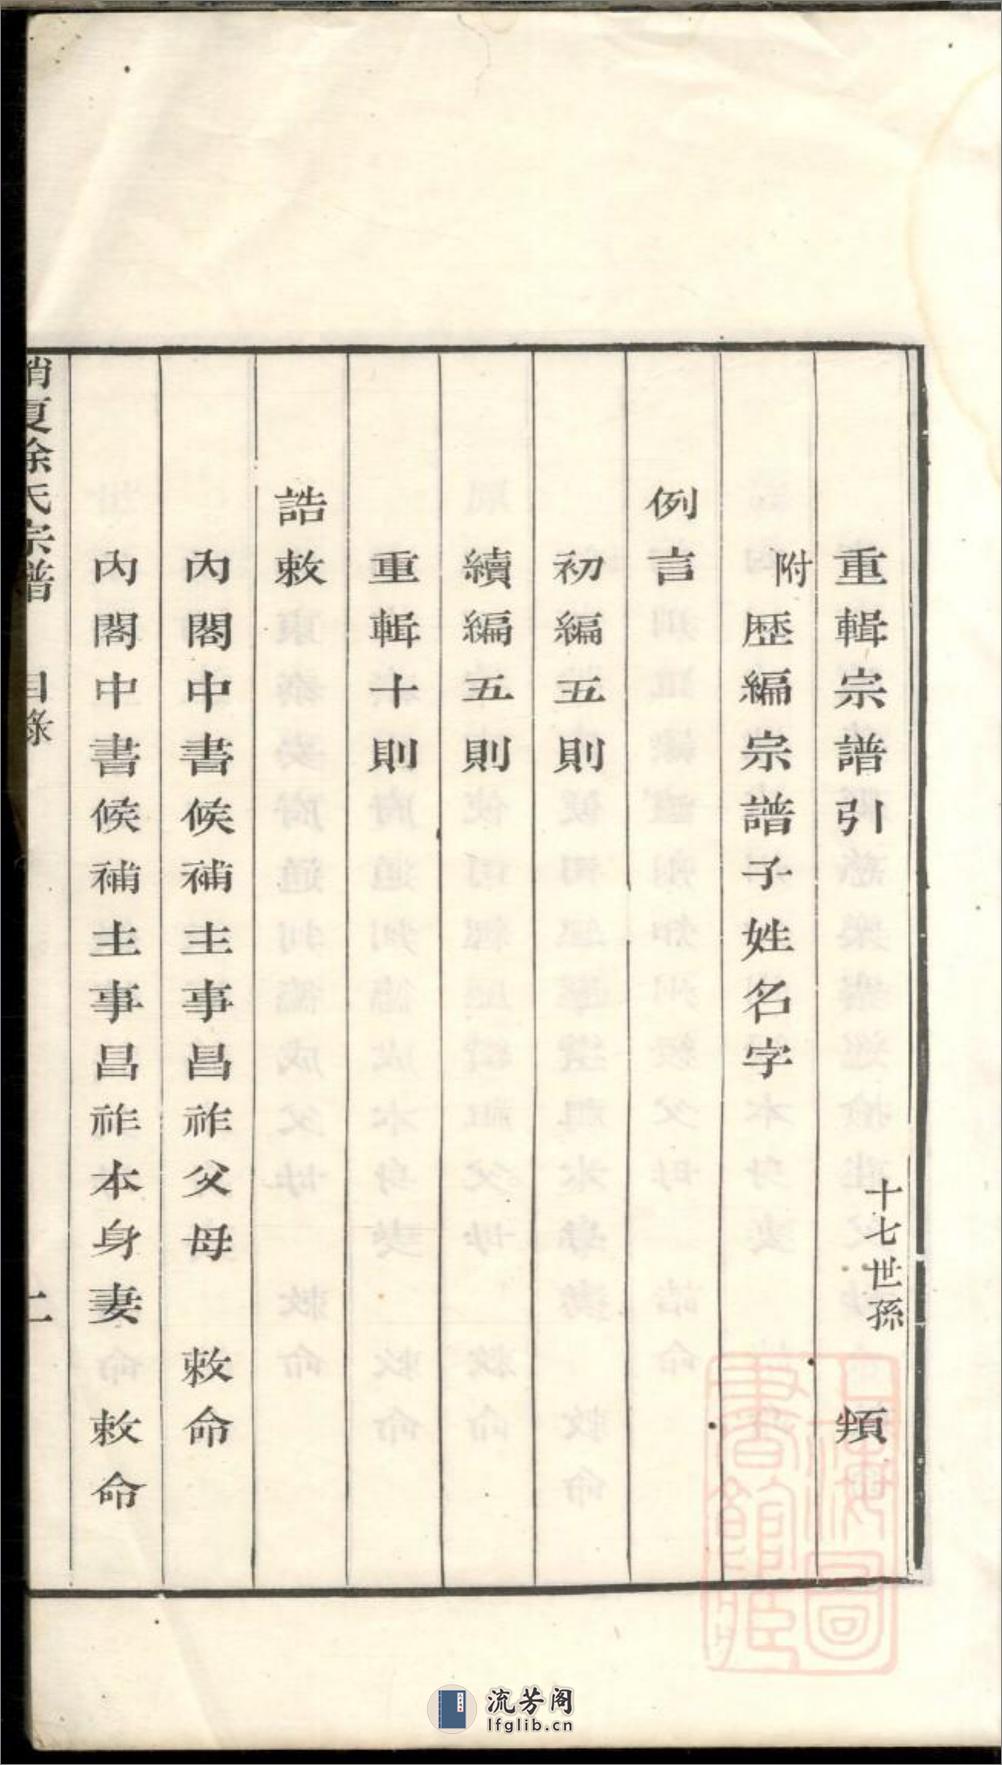 重輯宗譜引 十七世孫 頫
附歷編宗譜子姓名字
例言
初編五則
續編五則
重輯十則
誥敕
內閣中書候補主事昌祚父母 敕命
內閣中書候補主事昌祚本身妻 敕命
消夏徐氏宗譜 目錄 上
上海圖書館藏
流芳阁
lfglib.cn